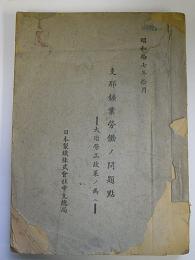 昭和拾七年拾月
支那鑛業労働ノ問題點
―大冶労工政策ノ為ニ―
日本製鐵株式會社中支總局